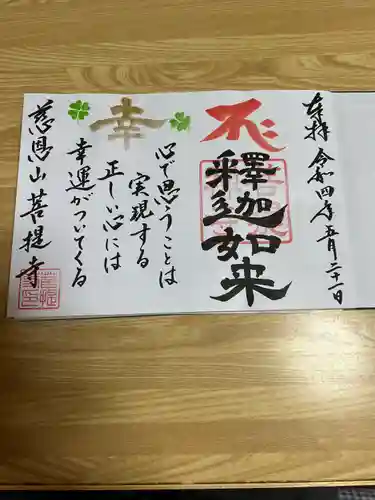 奉拝 令和四年五月二十一日
釋迦如来
幸
心で思うことは
実現する
正しい心には
幸運がついてくる
慈恩山 菩提寺